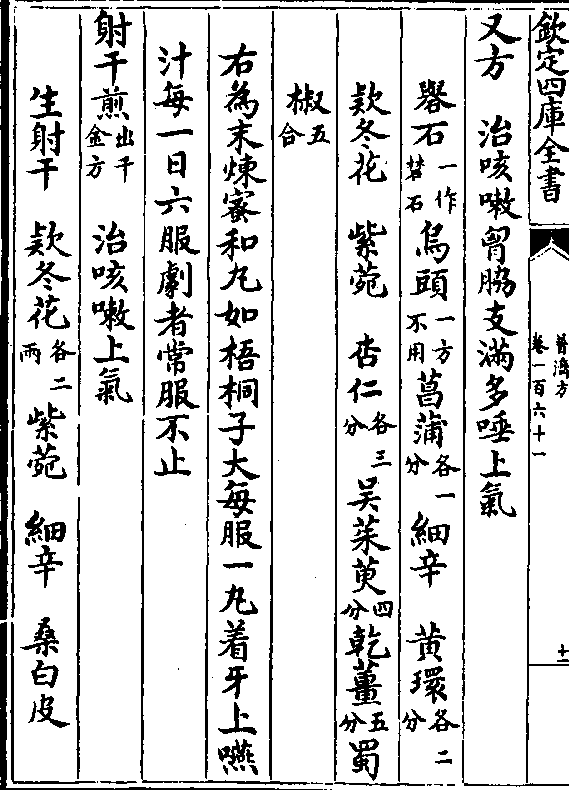 欽定四庫全書
普濟方
卷一百六十一
十二
又方　治咳嗽胷脇支滿多唾上氣
礜石一作礬石　烏頭一方不用　菖蒲各一分　細辛　黄環各二分
欵冬花　紫菀　杏仁各三分　吴茱萸四分　乾薑五分　蜀
椒五合
右為末煉蜜和丸如梧桐子大每服一丸着牙上嚥
汁每一日六服劇者常服不止
射干煎出千金方　治咳嗽上氣
生射干　欵冬花各二兩　紫菀　細辛　桑白皮